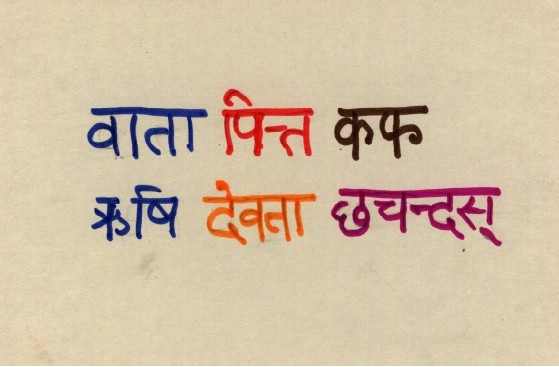 वाता पित्त कफ
ऋषि देवता छचन्दस्